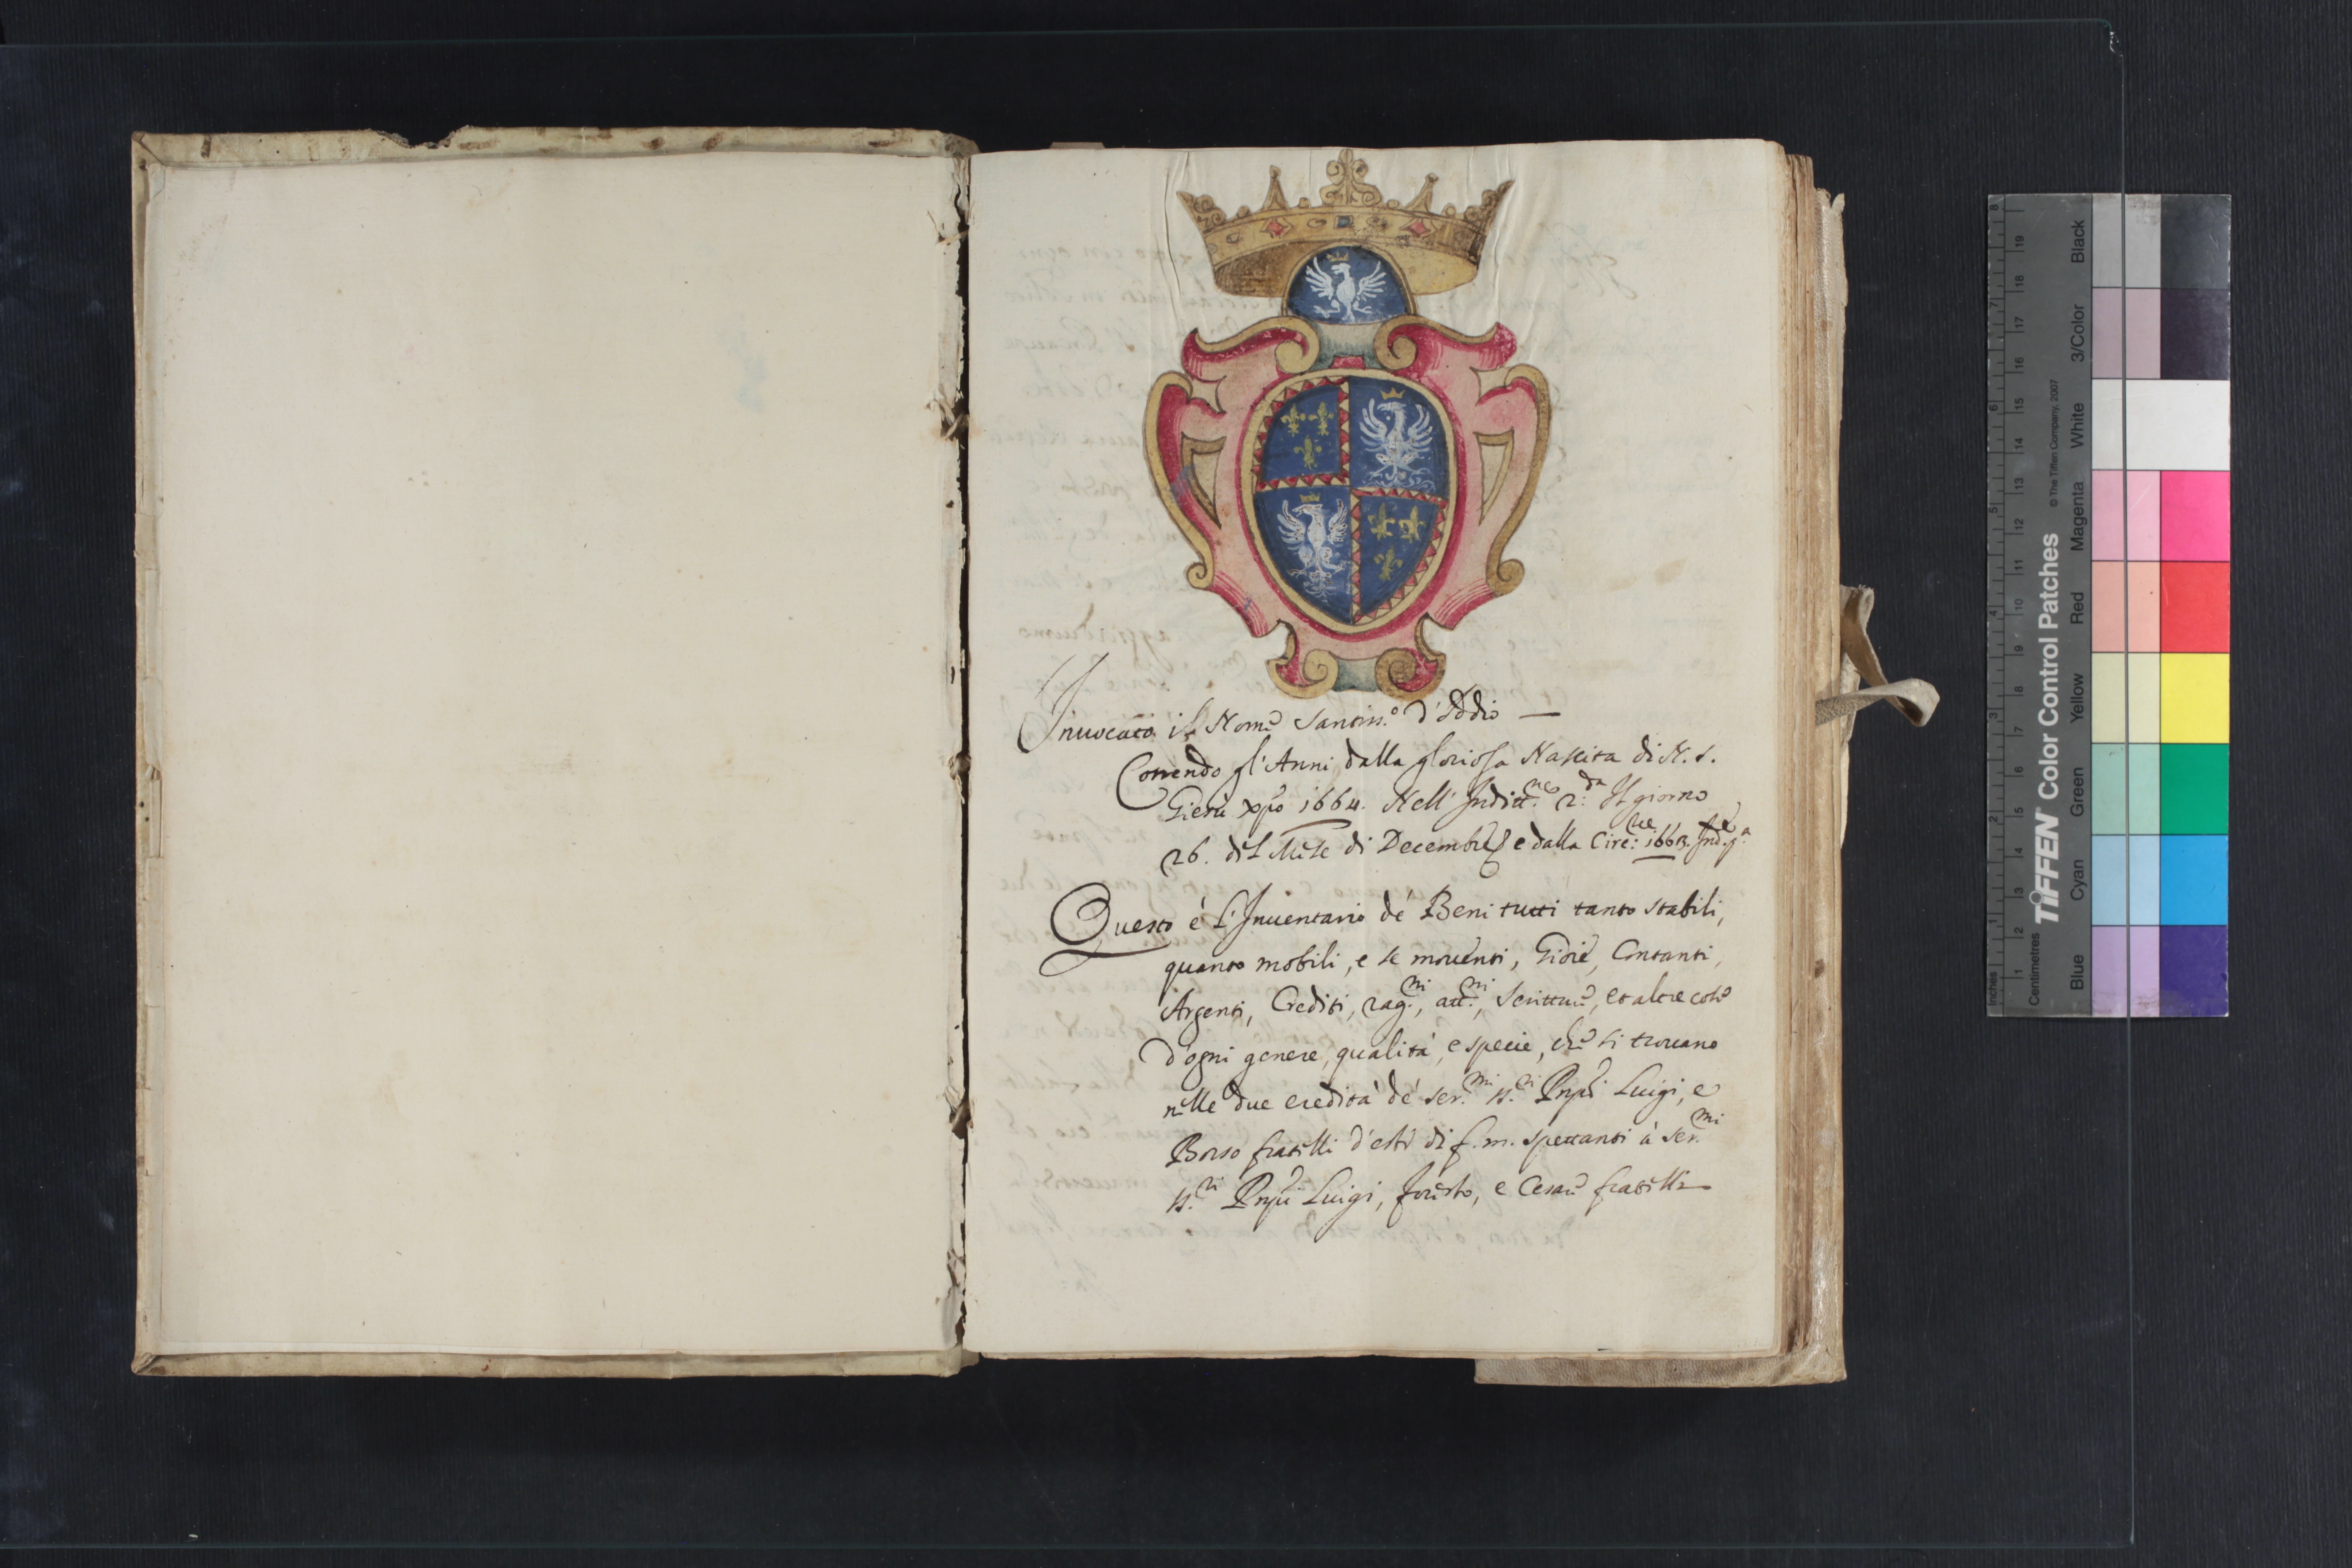 Inuocato il Nome Santiss.º d'Iddio —
Correndo gl'Anni dalla gloriosa Nascita di N. S.
Giesù Xpo 1664. Nell' Inditt.ne 2:da Il giorno
26. del Mese di Decembre e dalla Circ:ne 1663. Ind.e p.a
Questo è l'Inuentario de' Beni tutti tanto stabili,
quanto mobili, e se mouenti, Gioie, Contanti,
Argenti, Crediti, rag.ni, att.ni, Scritture, et altre cose
d'ogni genere, qualità, e specie, che si trouano
nelle due eredità de' Ser.mi SS.ri Prnpi Luigi, e
Borso fratelli d'Este di f. m. spettanti à Ser.mi
SS.ri Prnpi Luigi, Foresto, e Cesare fratelli
Inches
Centimetres
1 2 3 4 5 6 7 8
1 2 3 4 5 6 7 8 9 10 11 12 13 14 15 16 17 18 19
TIFFEN® Color Control Patches
© The Tiffen Company, 2007
Blue
Cyan
Green
Yellow
Red
Magenta
White
3/Color
Black